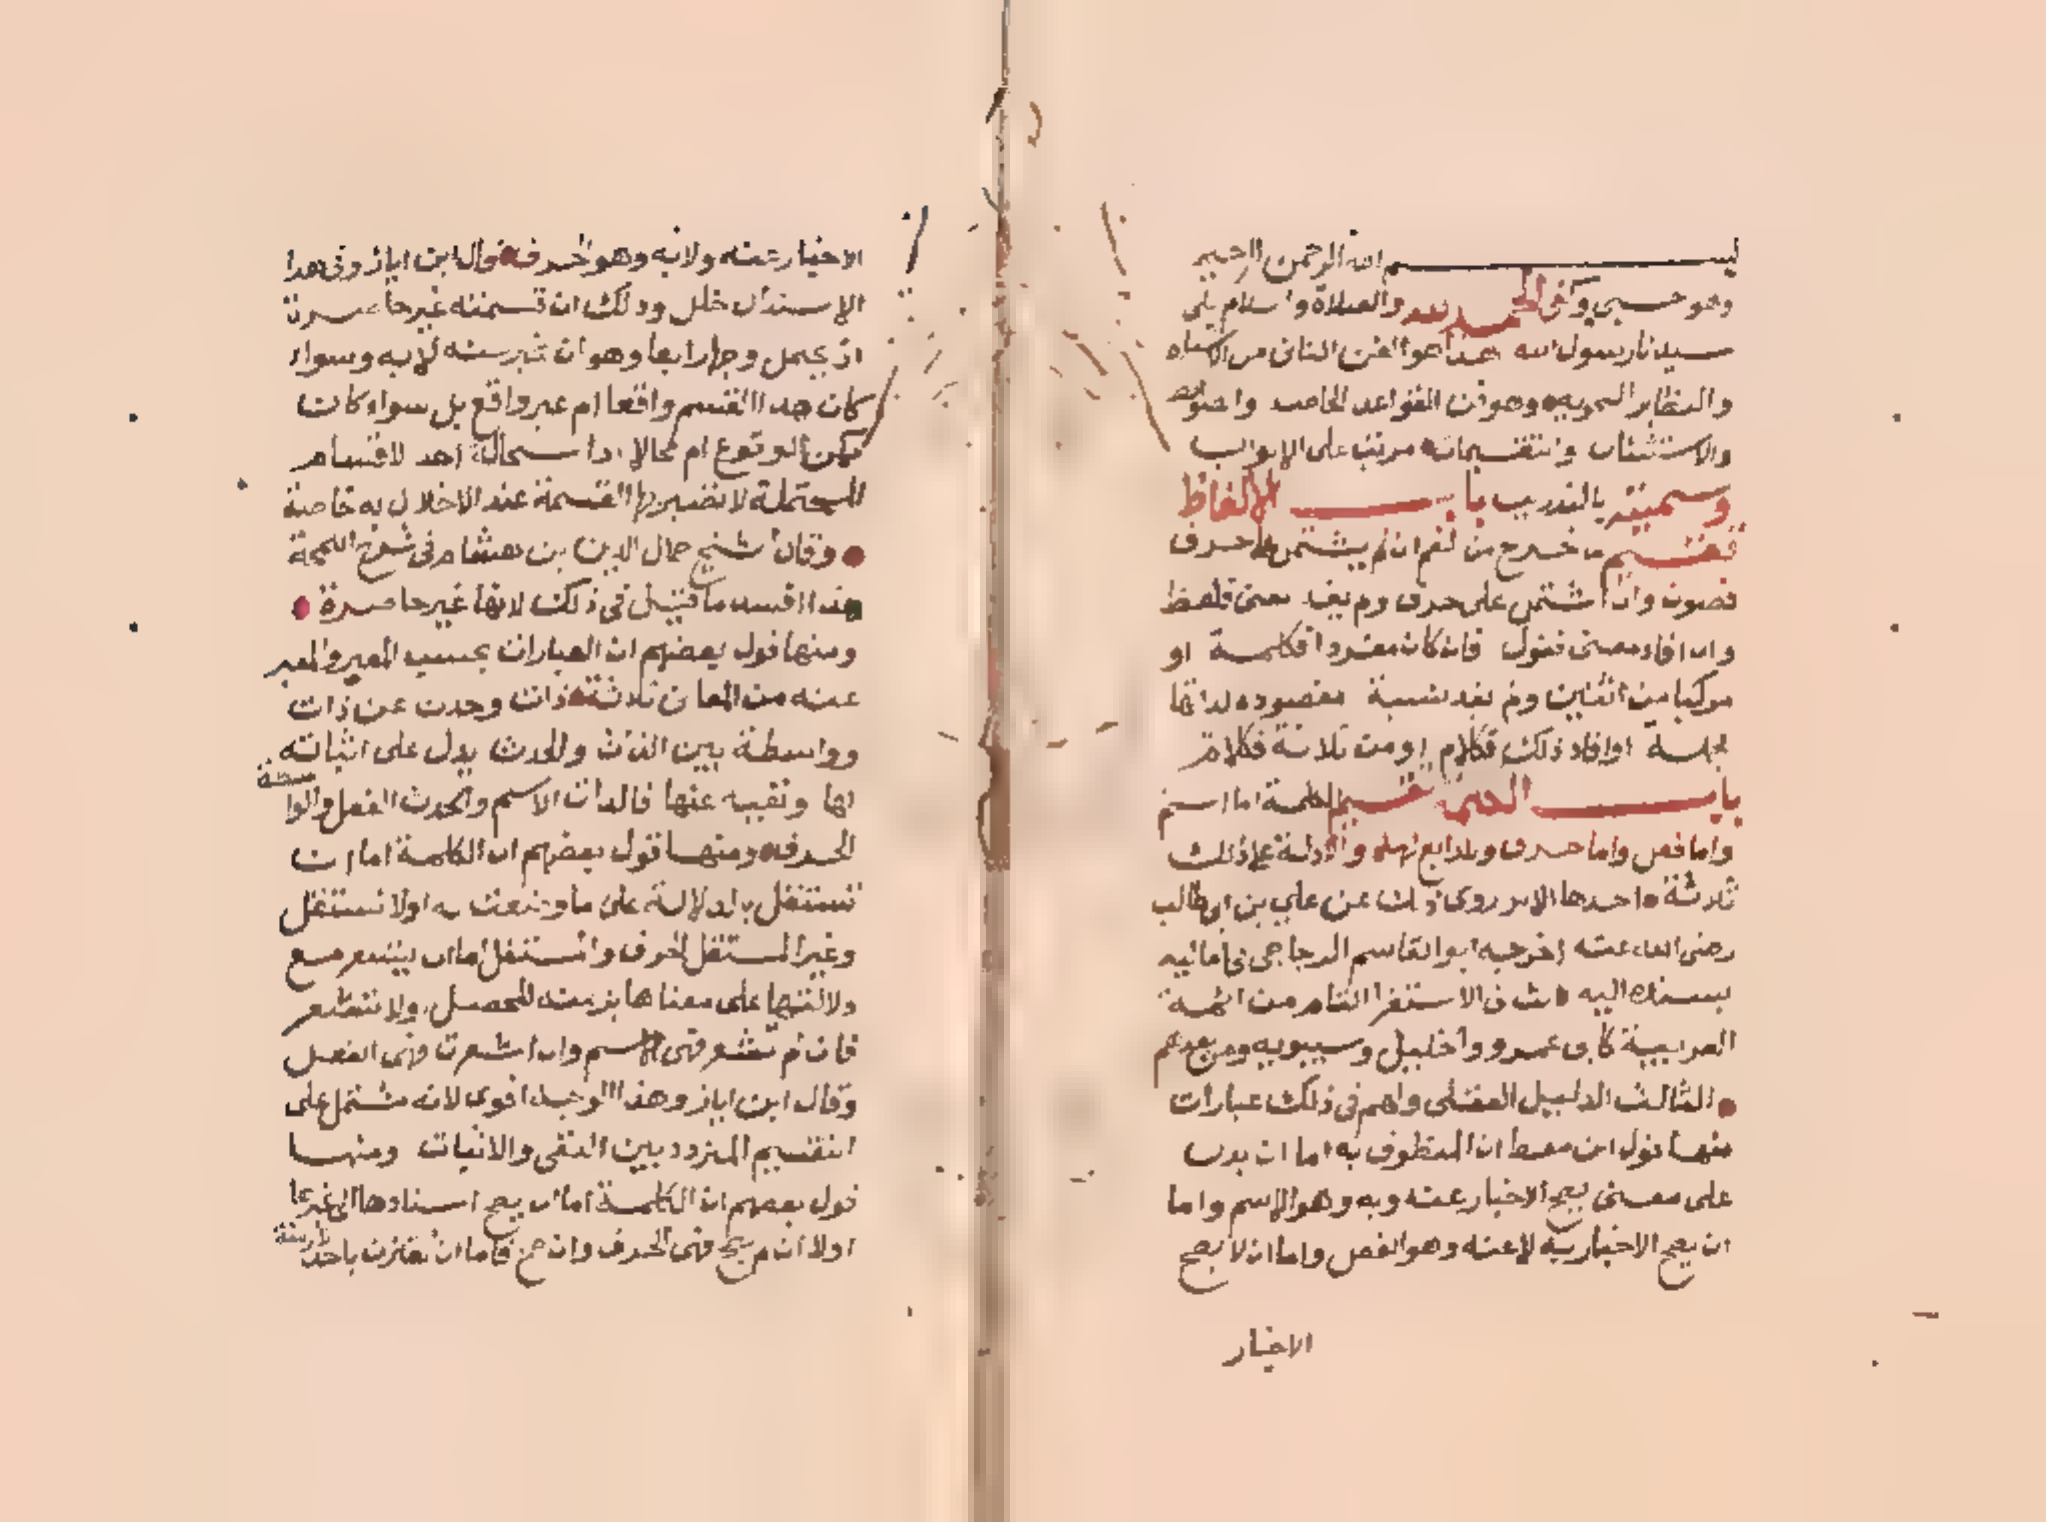 بسم الله الرحمن الرحيم
وهو حسبي وكفى الحمد لله والصلاة والسلام على
سيدنا رسول الله هذا هو الفن الثاني من الاشباه
والنظاير النحويه وهو فن القواعد الخاصه والضوابط
والاستثناات والتقسيمات مرتب على الابواب
وسميته بالتدريب باب الالفاظ
تقسيم ما خرج من الفم ان لم يشتمل على حرف
فصوت وان اشتمل على حرف ولم يفد معنى فلفظ
وان افاد معنى فقول فان كان مفردا فكلمة او
مركبا من اثنين ولم يفد نسبة مقصوده لذاتها
فجملة او افاد ذلك فكلام او من ثلاثة فكلام
باب الكلمة تقسيم الكلمة اما اسم
واما فعل واما حرف ولا رابع لها والادلة على ذلك
ثلاثة احدها الاثر روى ذلك عن علي بن ابي طالب
رضى الله عنه اخرجه ابو القاسم الزجاجى فى اماليه
بسنده اليه الثانى الاستقرا التام من ائمة
العربية كابى عمرو والخليل وسيبويه ومن بعدهم
الثالث الدليل العقلى ولهم فى ذلك عبارات
منها قول ابن معط ان المنطوق به اما ان يدل
على معنى يصح الاخبار عنه وبه وهو الاسم واما
ان يصح الاخبار به لا عنه وهو الفعل واما ان لا يصح
الاخبار
الاخبار عنه ولا به وهو الحرف قال ابن اياز وفى هذا
الاستدلال خلل وذلك ان قسمته غير حاصرة
اذ يحتمل وجها رابعا وهو ان يخبر عنه لا به وسواء
كان هذا القسم واقعا ام غير واقع بل سواء كان
ممكن الوقوع ام محالا اذ استحالة احد الاقسام
المحتملة لا تصير بها القسمة عند الاخلال به حاصرة
وقال الشيخ جمال الدين بن هشام فى شرح اللمحة
هذا افسد ما قيل فى ذلك لانها غير حاصرة
ومنها قول بعضهم ان العبارات بحسب المعبر والمعبر
عنه من المعانى ثلاثة ذات وحدث عن ذات
وواسطة بين الذات والحدث يدل على اثباته
لها ونفيه عنها فالذات الاسم والحدث الفعل والواسطة
الحرف ومنها قول بعضهم ان الكلمة اما ان
تستقل بالدلالة على ما وضعت له او لا تستقل
وغير المستقل الحرف والمستقل اما ان يشعر مع
دلالتها على معناها بزمنه المحصل او لا تشعر
فان لم تشعر فهى الاسم وان اشعرت فهى الفعل
وقال ابن اياز وهذا الوجه اقوى لانه مشتمل على
التقسيم المتردد بين النفى والاثبات ومنها
قول بعضهم ان الكلمة اما ان يصح اسنادها الى غيرها
او لا ان لم يصح فهى الحرف وان صح فاما ان تقترن باحد الازمنة